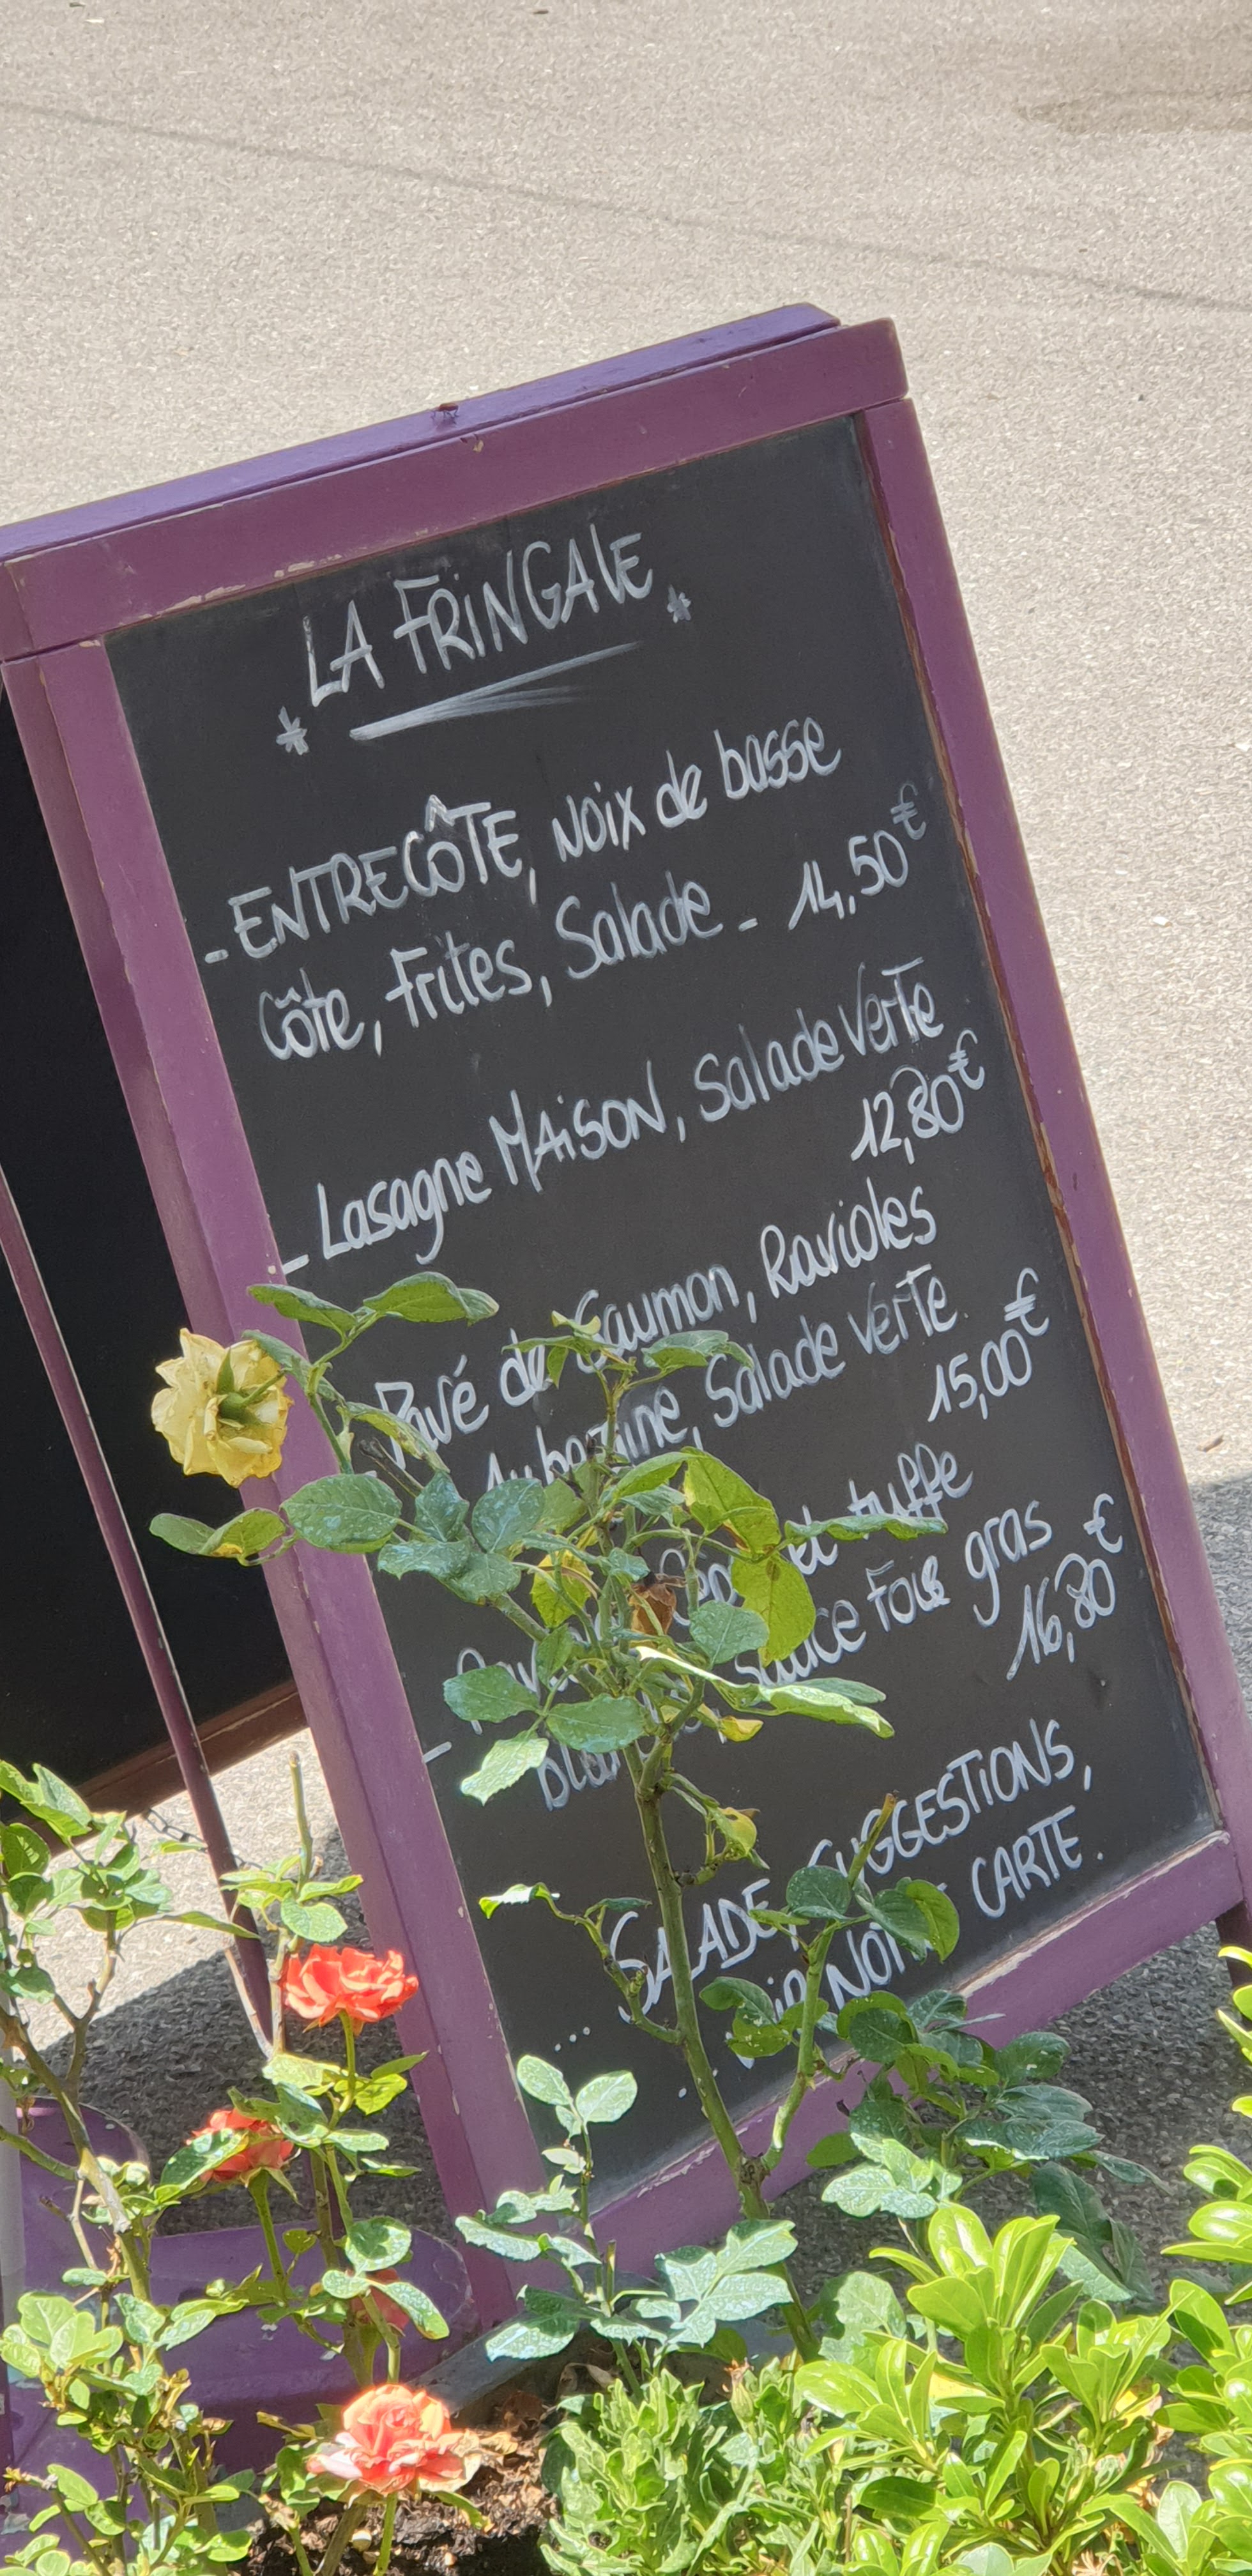 LA FRiNGALE
- ENTRECÔTE, NOiX de basse
Côte, Frites, Salade - 14,50€
- Lasagne MAiSON, Salade verTe
12,80€
Pavé de Saumon, Ravioles
Aubergine, Salade verTe.
15,00€
et truffe
sauce Foie gras
16,80€
SALADE, SUGGESTiONS,
CARTE.